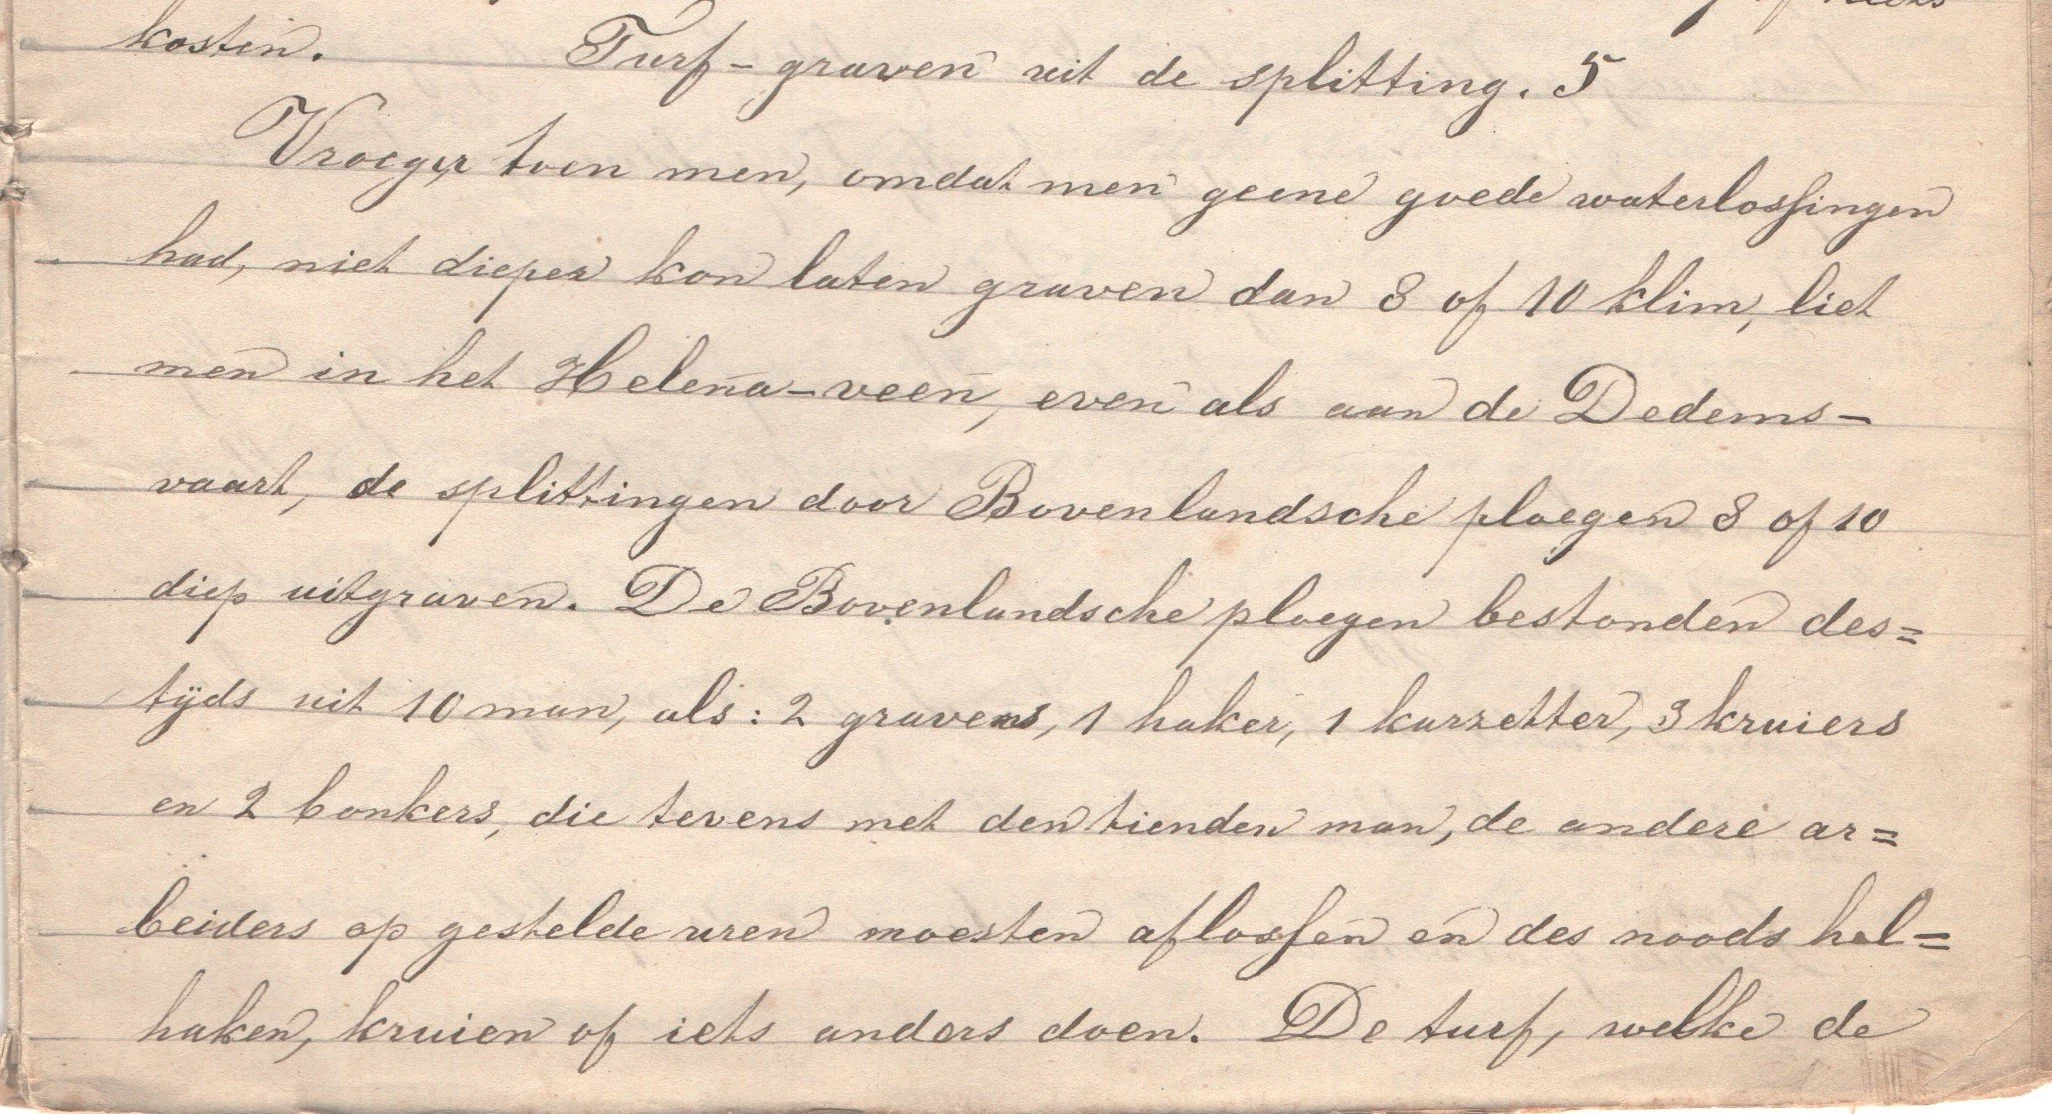 kosten. Turf-graven uit de splitting. 5
Vroeger toen men, omdat men geene goede waterlossingen
had, niet dieper kon laten graven dan 8 of 10 klim, liet
men in het Helena-veen, even als aan de Dedems-
vaart, de splittingen door Bovenlandsche ploegen 8 of 10
diep uitgraven. De Bovenlandsche ploegen bestonden des=
tijds uit 10 man, als: 2 gravers, 1 haker, 1 karzetter, 3 kruiers
en 2 bonkers, die tevens met den tienden man, de andere ar=
beiders op gestelde uren moesten aflossen en des noods hal=
haken, kruien of iets anders doen. De turf, welke de